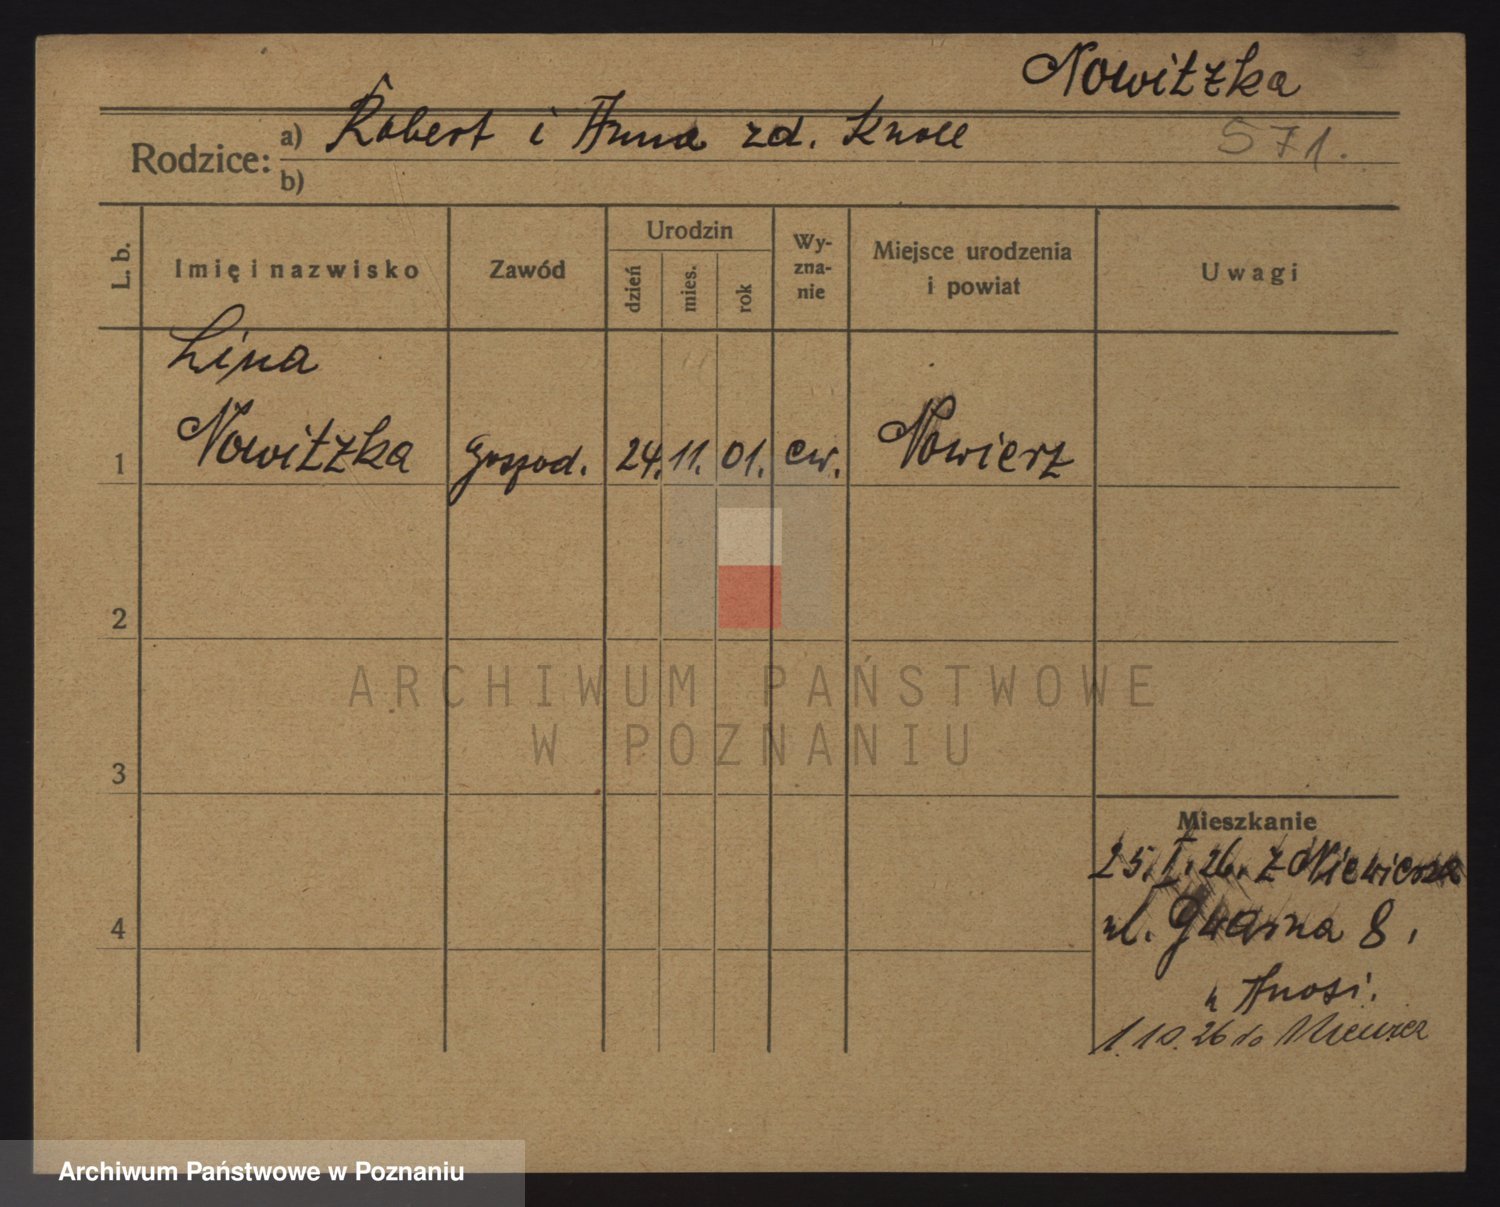 Nowitzka
Rodzice: a) Robert i Anna zd. Knoll
571.
b)
L. b.
Imię i nazwisko
Zawód
Urodzin
dzień
mies.
rok
Wy-
zna-
nie
Miejsce urodzenia
i powiat
Uwagi
Lina
1 Nowitzka gospod. 24. 11. 01. ew. Nowierz
2
ARCHIWUM PAŃSTWOWE
W POZNANIU
3
Mieszkanie
25.I.26. z
4
ul. 8.
1.10.26 do
Archiwum Państwowe w Poznaniu